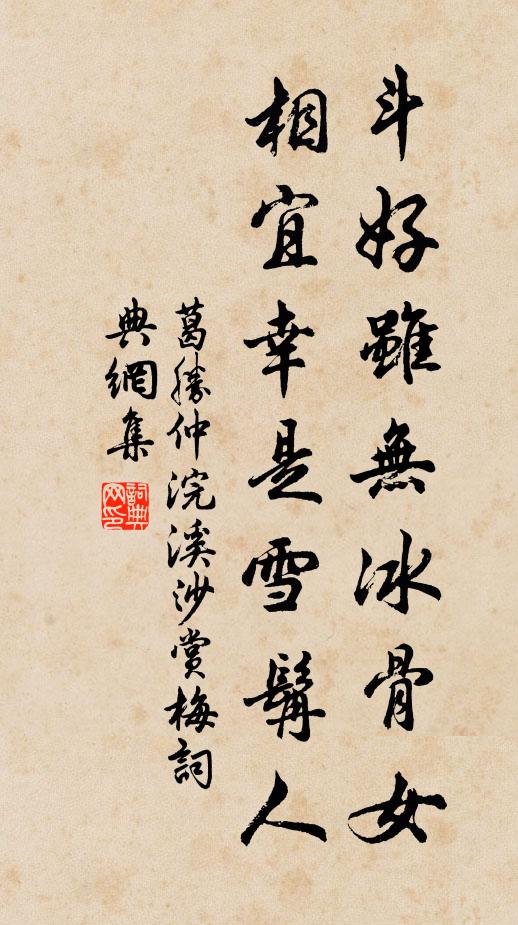 斗好雖無冰骨女
相宜幸是雪髯人
葛勝仲浣溪沙賞梅詞
典網集
詞典
网印